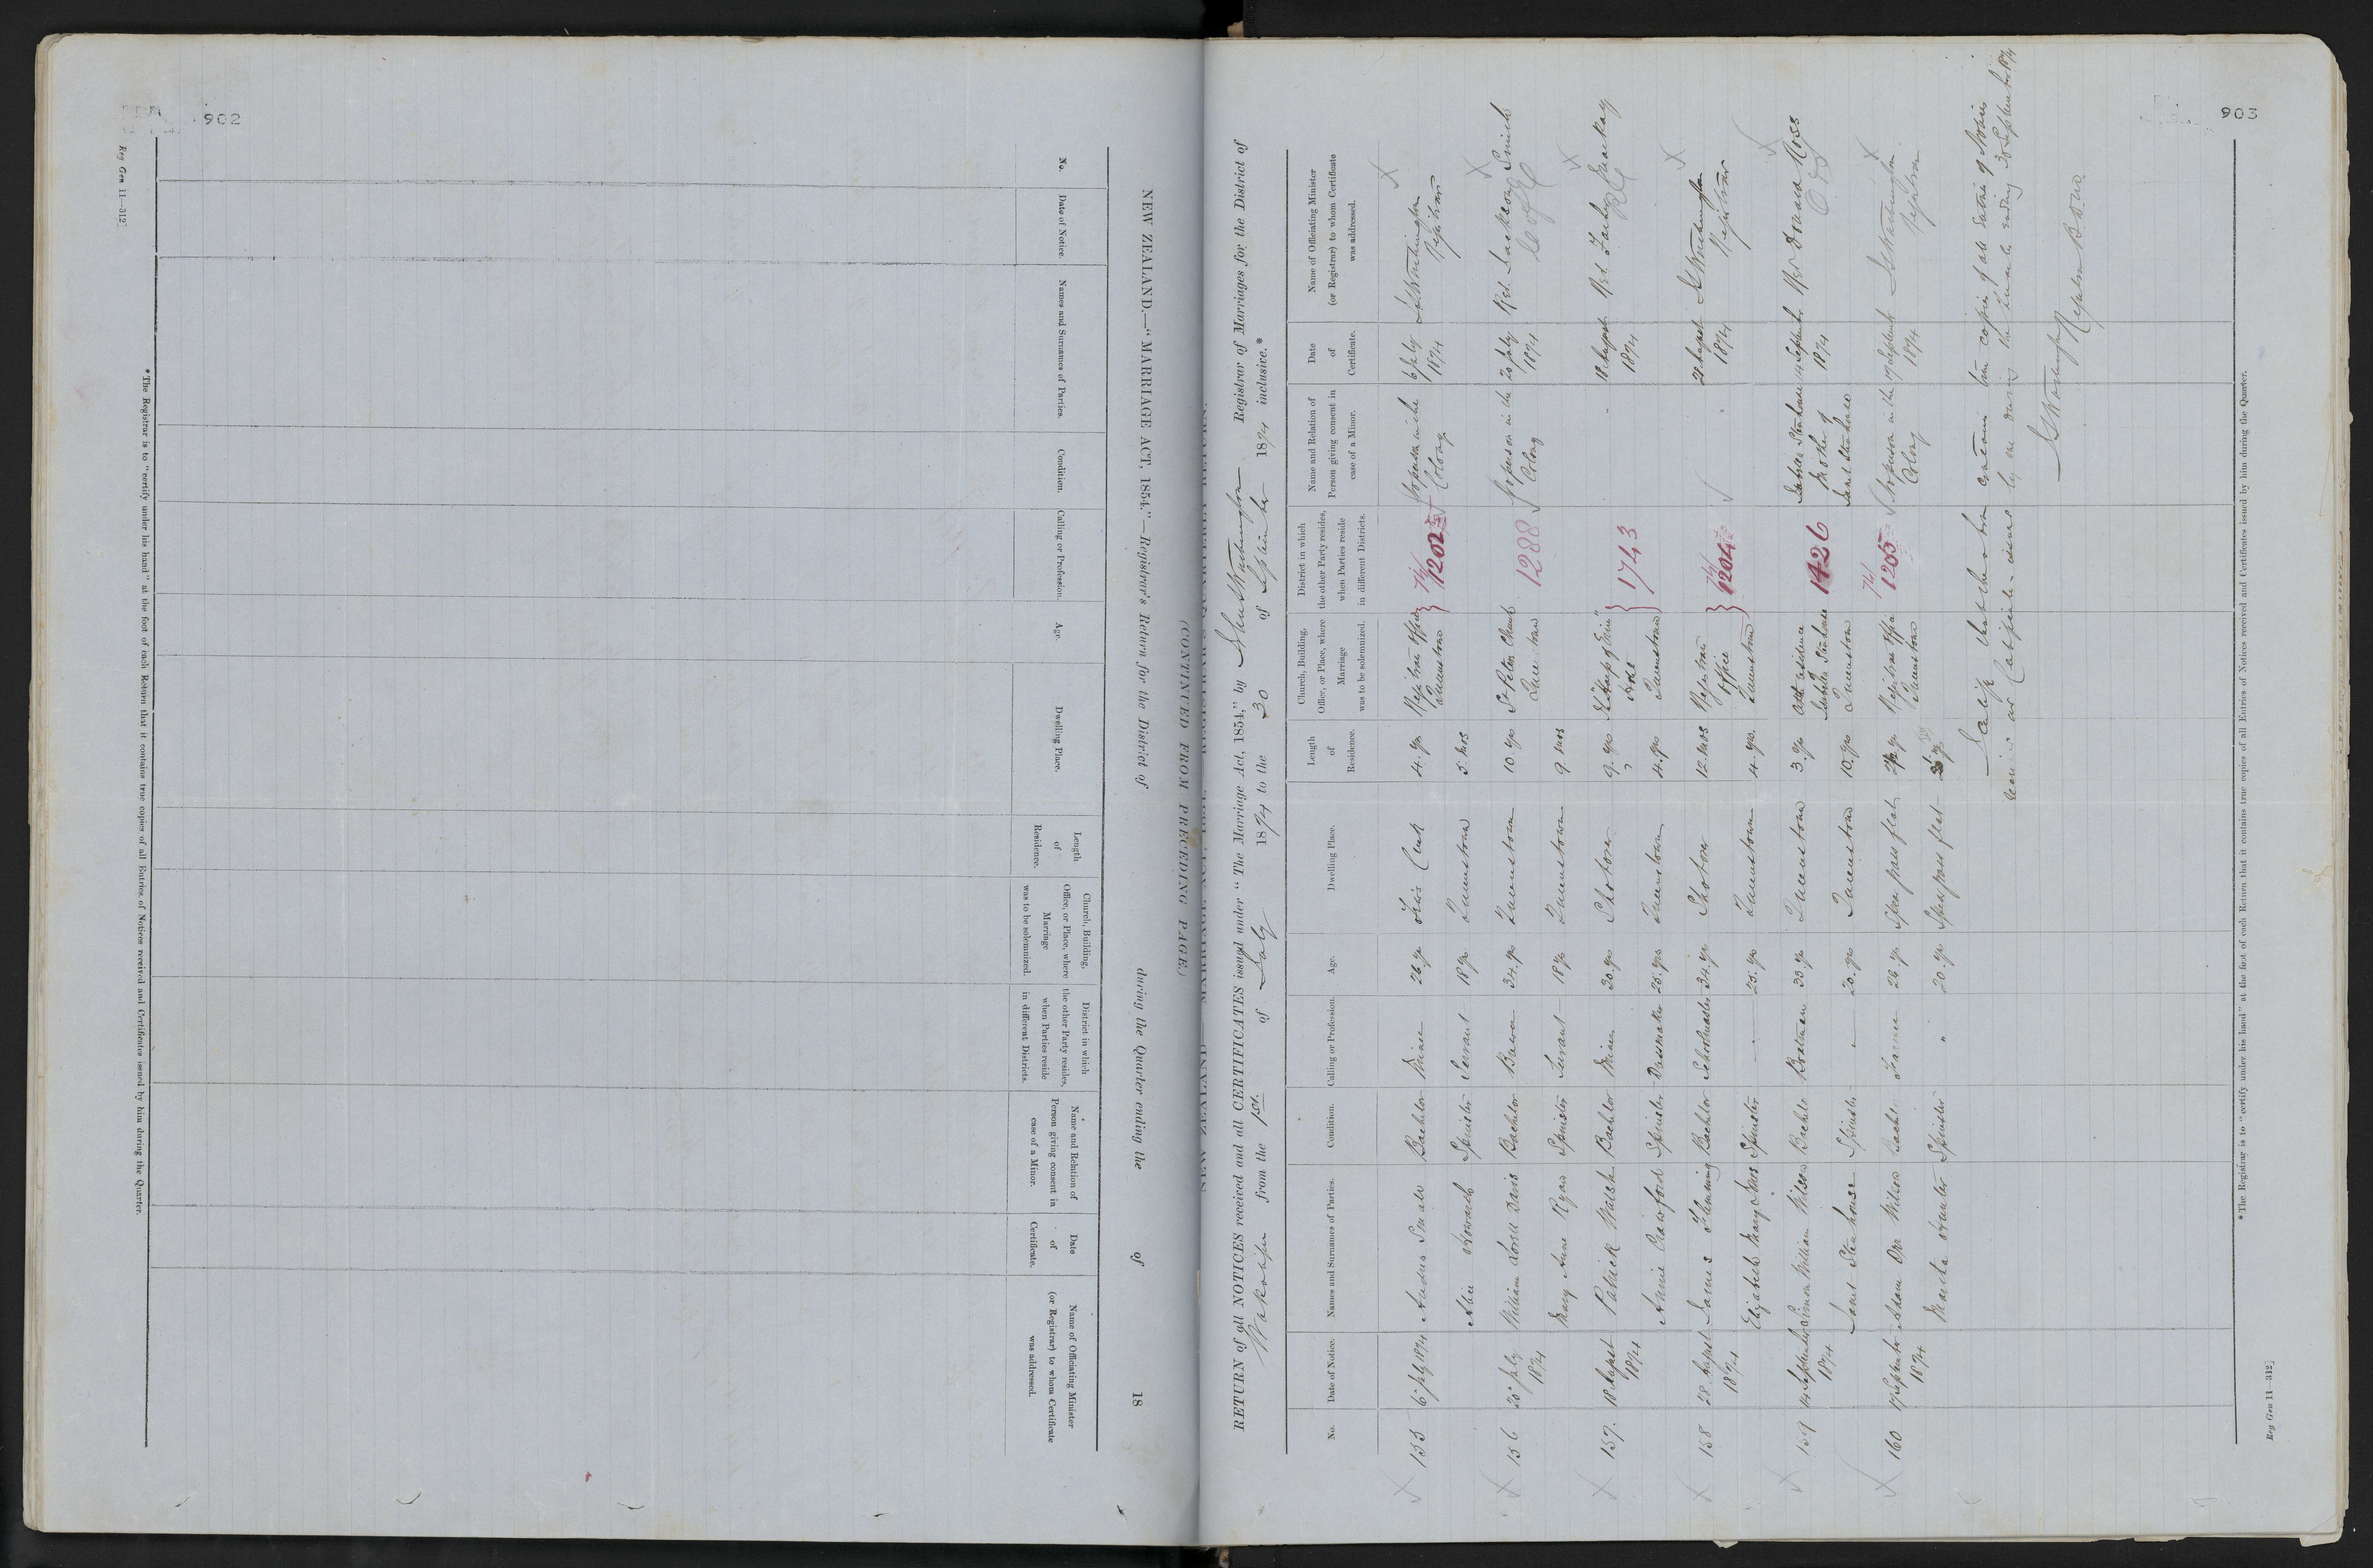 902
Reg Gen 11—312]
NEW ZEALAND.—"MARRIAGE ACT, 1854."—Registrar's Return for the District of during the Quarter ending the of 18
No.
Date of Notice.
Names and Surnames of Parties.
Condition.
Calling or Profession.
Age.
Dwelling Place.
Length
of
Residence.
Church, Building,
Office, or Place, where
Marriage
was to be solemnized.
District in which
the other Party resides,
when Parties reside
in different Districts.
Name and Relation of
Person giving consent in
case of a Minor.
Date
of
Certificate.
Name of Officiating Minister
(or Registrar) to whom Certificate
was addressed.
* The Registrar is to "certify under his hand" at the foot of each Return that it contains true copies of all Entries of Notices received and Certificates issued by him during the Quarter.
(CONTINUED FROM PRECEDING PAGE.)
903
RETURN of all NOTICES received and all CERTIFICATES issued under "The Marriage Act, 1854," by Registrar of Marriages for the District of
Wakatipu from the 1st. of July 1874 to the 30 of September 1874 inclusive.*
No.
Date of Notice.
Names and Surnames of Parties.
Condition.
Calling or Profession.
Age.
Dwelling Place.
Length
of
Residence.
Church, Building,
Office, or Place, where
Marriage
was to be solemnized.
District in which
the other Party resides,
when Parties reside
in different Districts.
Name and Relation of
Person giving consent in
case of a Minor.
Date
of
Certificate.
Name of Officiating Minister
(or Registrar) to whom Certificate
was addressed.
155 6 July 1874 Bachelor Miner 26 yrs 4 yrs Registrars Office Queenstown 1202 No person in the Colony 6 July 1874 Registrar
Spinster Servant 18 yrs Queenstown 5 mos
156 20 July 1874 William Davis Bachelor 34 yrs Queenstown 10 yrs St Peters Church Queenstown 1288 No person in the Colony 20 July 1874 Rev. Jackson Smith
Mary Anne Ryan Spinster Servant 18 yrs Queenstown 9 mos
157 18 August 1874 Patrick Walsh Bachelor Miner 30 yrs Shotover 9 yrs Hotel Queenstown 1743 18 August 1874 Rev. Mackay
Annie Crawford Spinster Dressmaker Queenstown 4 yrs
158 28 August 1874 James Flemming Bachelor Schoolmaster 34 yrs Shotover 12 mos Registrars Office Queenstown 1204 28 August 1874 Registrar
Elizabeth Mary Spinster 25 yrs Queenstown 4 yrs
159 14 September 1874 William Wilson Bachelor Boatman Queenstown 3 yrs At the residence of Stenhouse Queenstown 1426 Stenhouse Mother of Janet Stenhouse 14 September 1874 Rev Donald Ross
Janet Stenhouse Spinster 20 yrs Queenstown 10 yrs
160 17 September 1874 Adam Orr Wilson Bachelor Farmer Registrars Office Queenstown 1205 No person in the Colony 17 September 1874 Registrar
Hunter Spinster " 20 yrs
I certify that the above contains true copies of all Entries of Notices
received and Certificates issued by me during the Quarter ending 30 September 1874
* The Registrar is to "certify under his hand" at the foot of each Return that it contains true copies of all Entries of Notices received and Certificates issued by him during the Quarter.
Reg Gen 11—312]